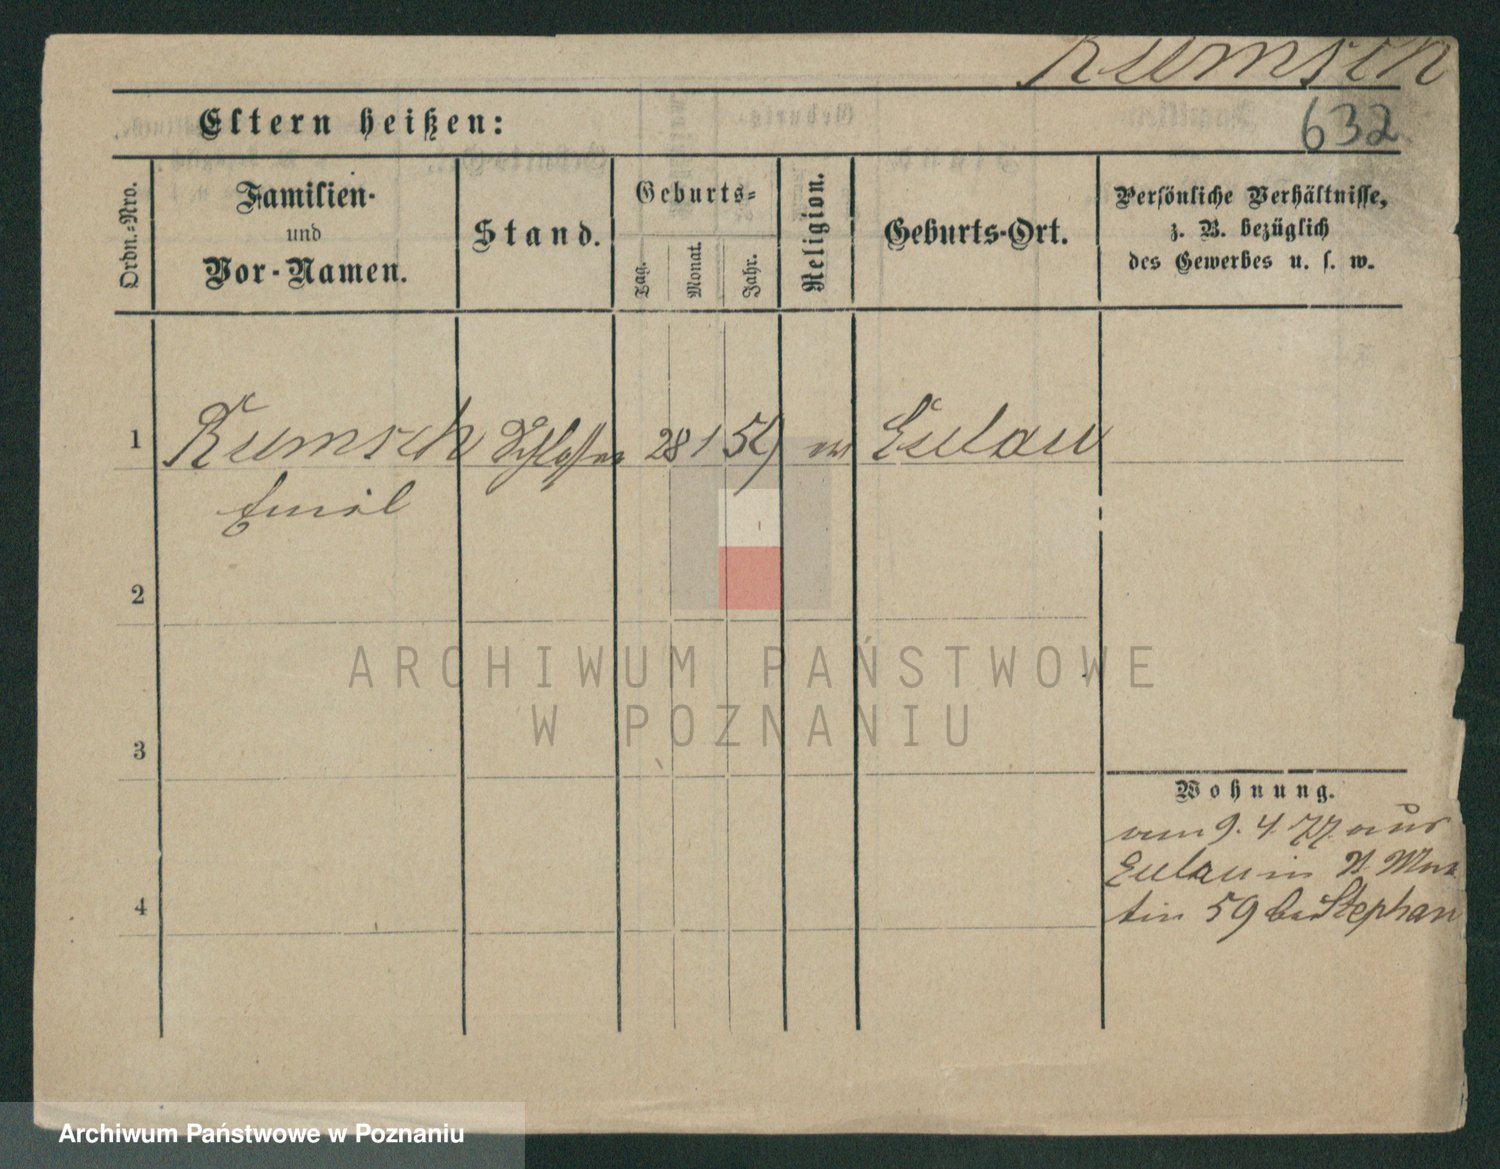 Rumsch
632
Eltern heißen:
Ordn.-Nro.
Familien-
und
Vor-Namen.
Stand.
Geburts-
Tag.
Monat.
Jahr.
Religion.
Geburts-Ort.
Persönliche Verhältnisse,
z. B. bezüglich
des Gewerbes u. s. w.
1 Rumsch Schlosser 28 1 59 ev Eulau
Emil
2
ARCHIWUM PAŃSTWOWE
W POZNANIU
3
Wohnung.
am 9. 4. 77. aus
Eulau in St. Mar
tin 59 bei Stephan
4
Archiwum Państwowe w Poznaniu